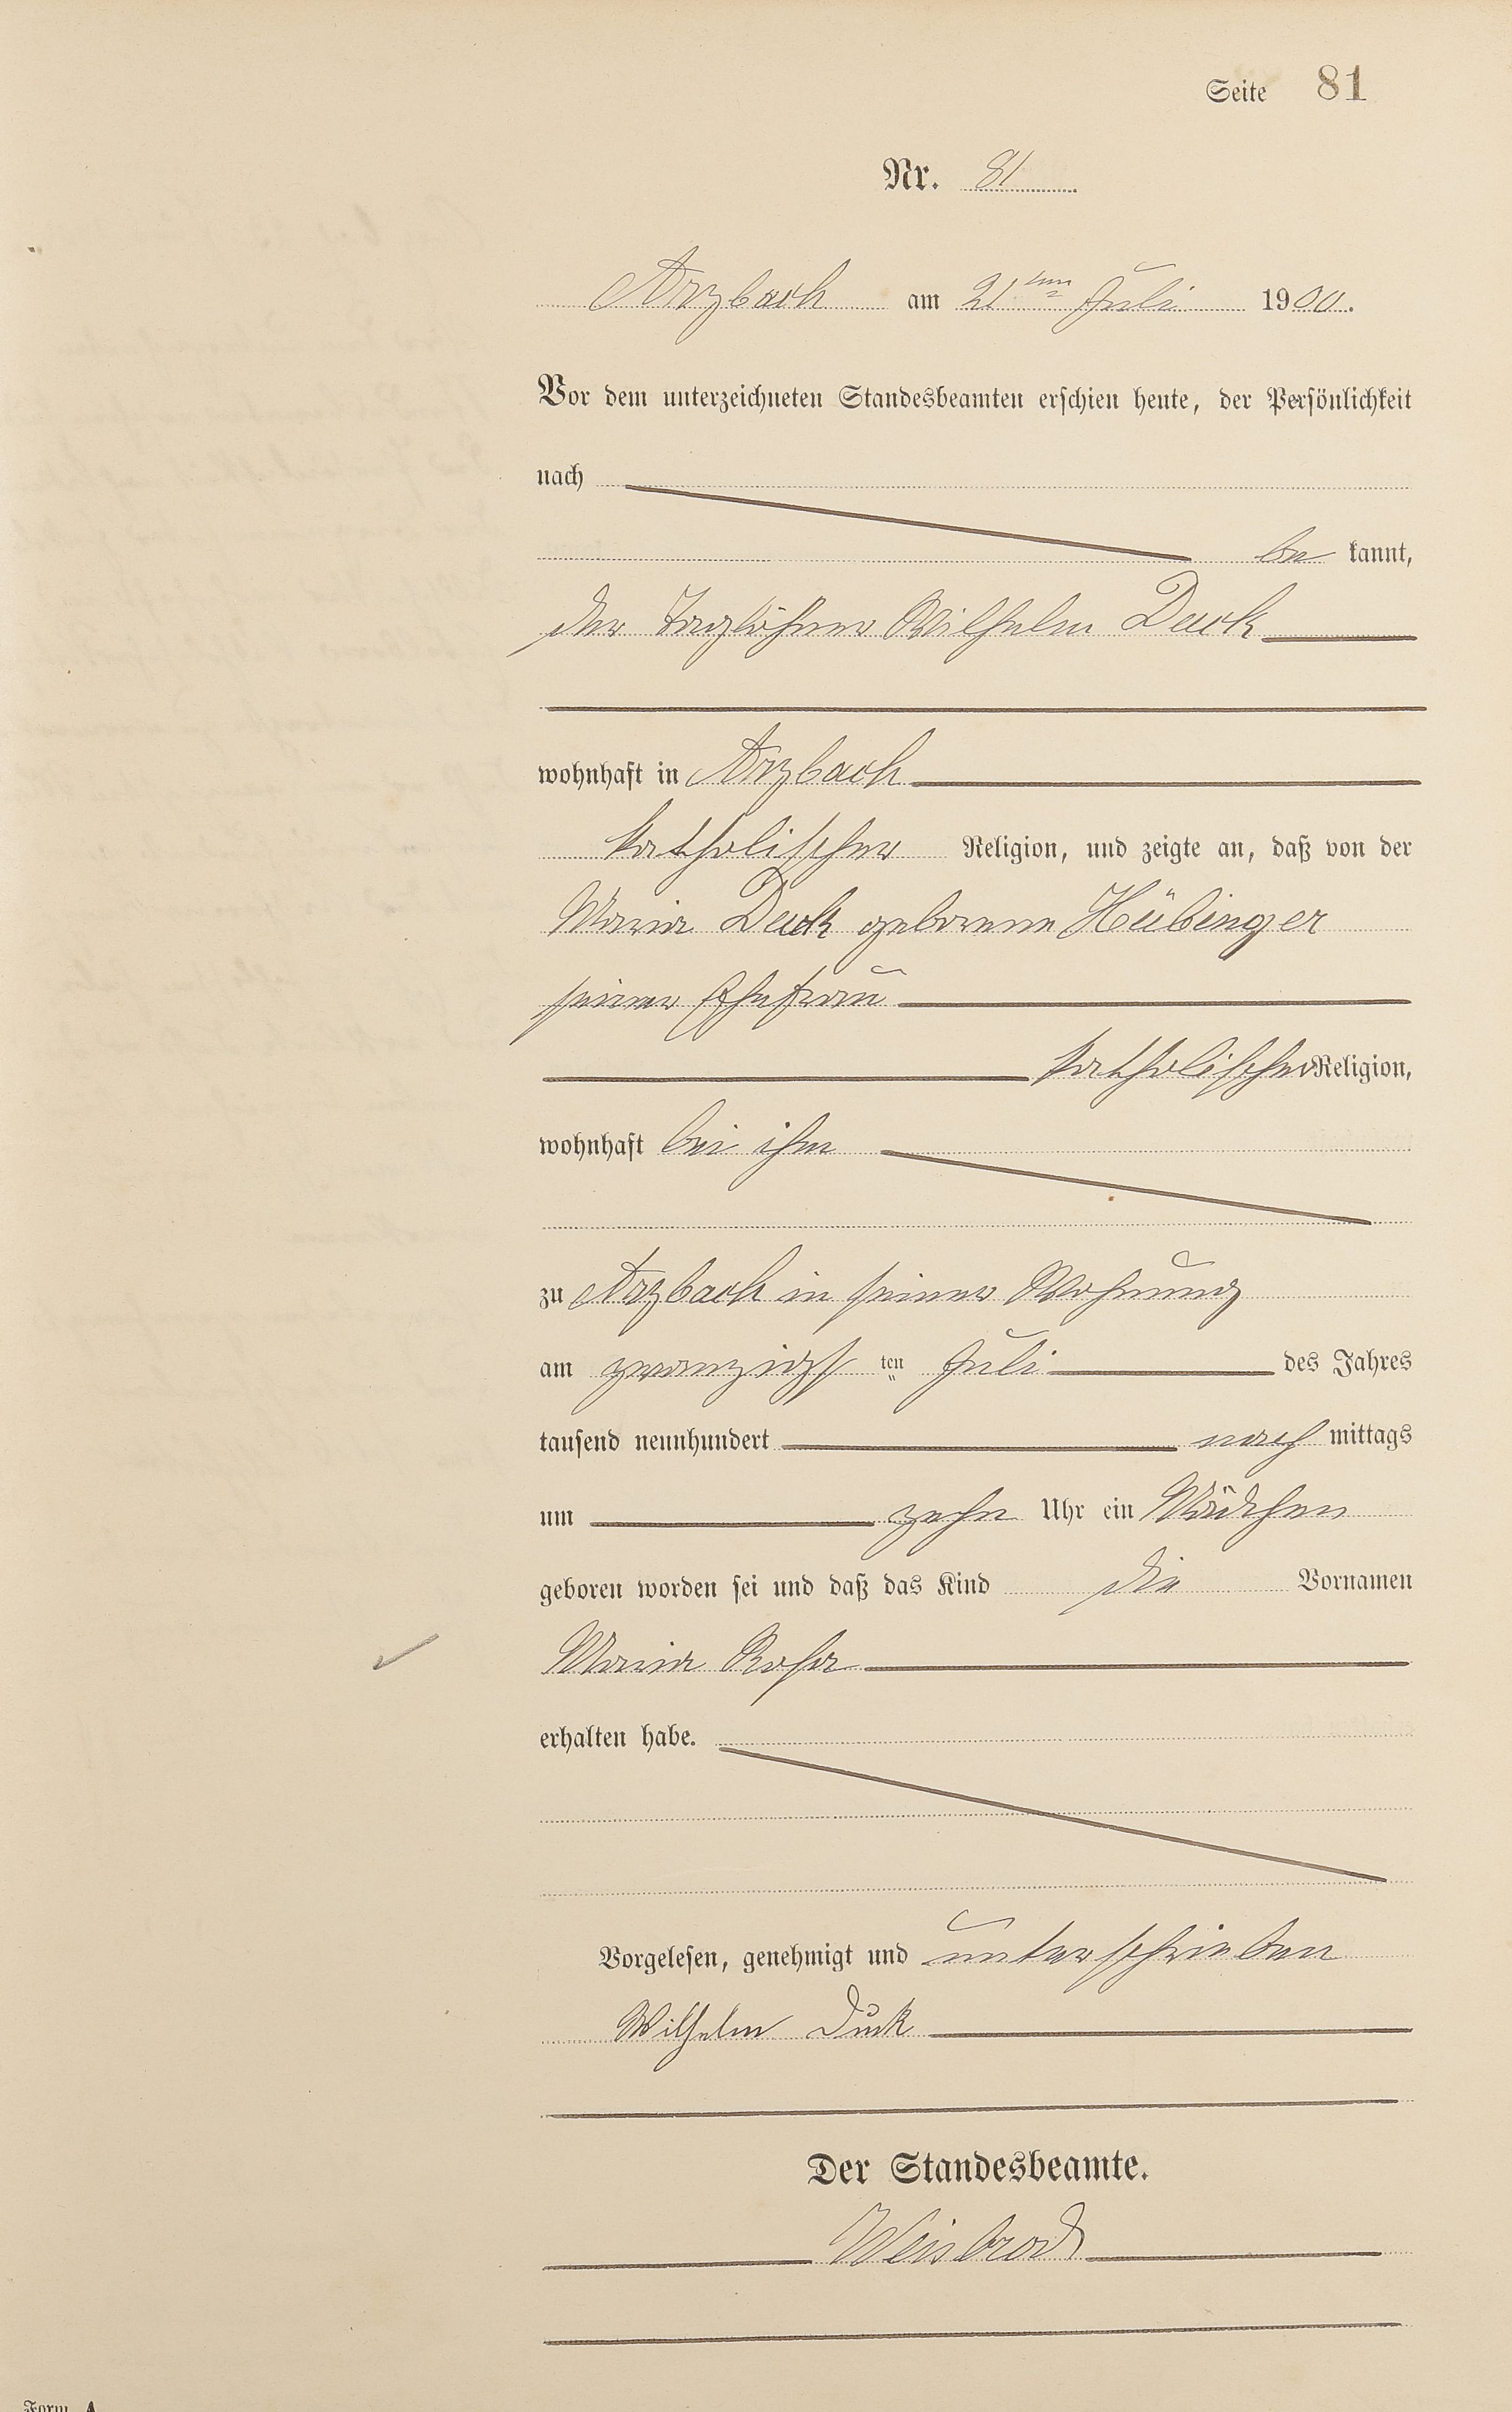 Seite 81
Nr. 81
Arzbach am 21ten Juli 1900.
Vor dem unterzeichneten Standesbeamten erschien heute, der Persönlichkeit
nach
be kannt,
der Taglöhner Wilhelm Deuck
wohnhaft in Arzbach
katholischer Religion, und zeigte an, daß von der
Maria Deuck geborene Hübinger
seiner Ehefrau
katholischer Religion,
wohnhaft bei ihm
zu Arzbach in seiner Wohnung
am zwanzigsten Juli des Jahres
tausend neunhundert nach mittags
um zehn Uhr ein Mädchen
geboren worden sei und daß das Kind die Vornamen
Maria Rosa
erhalten habe.
Vorgelesen, genehmigt und unterschrieben
Wilhelm
Der Standesbeamte.
Weisbrod
Form. A